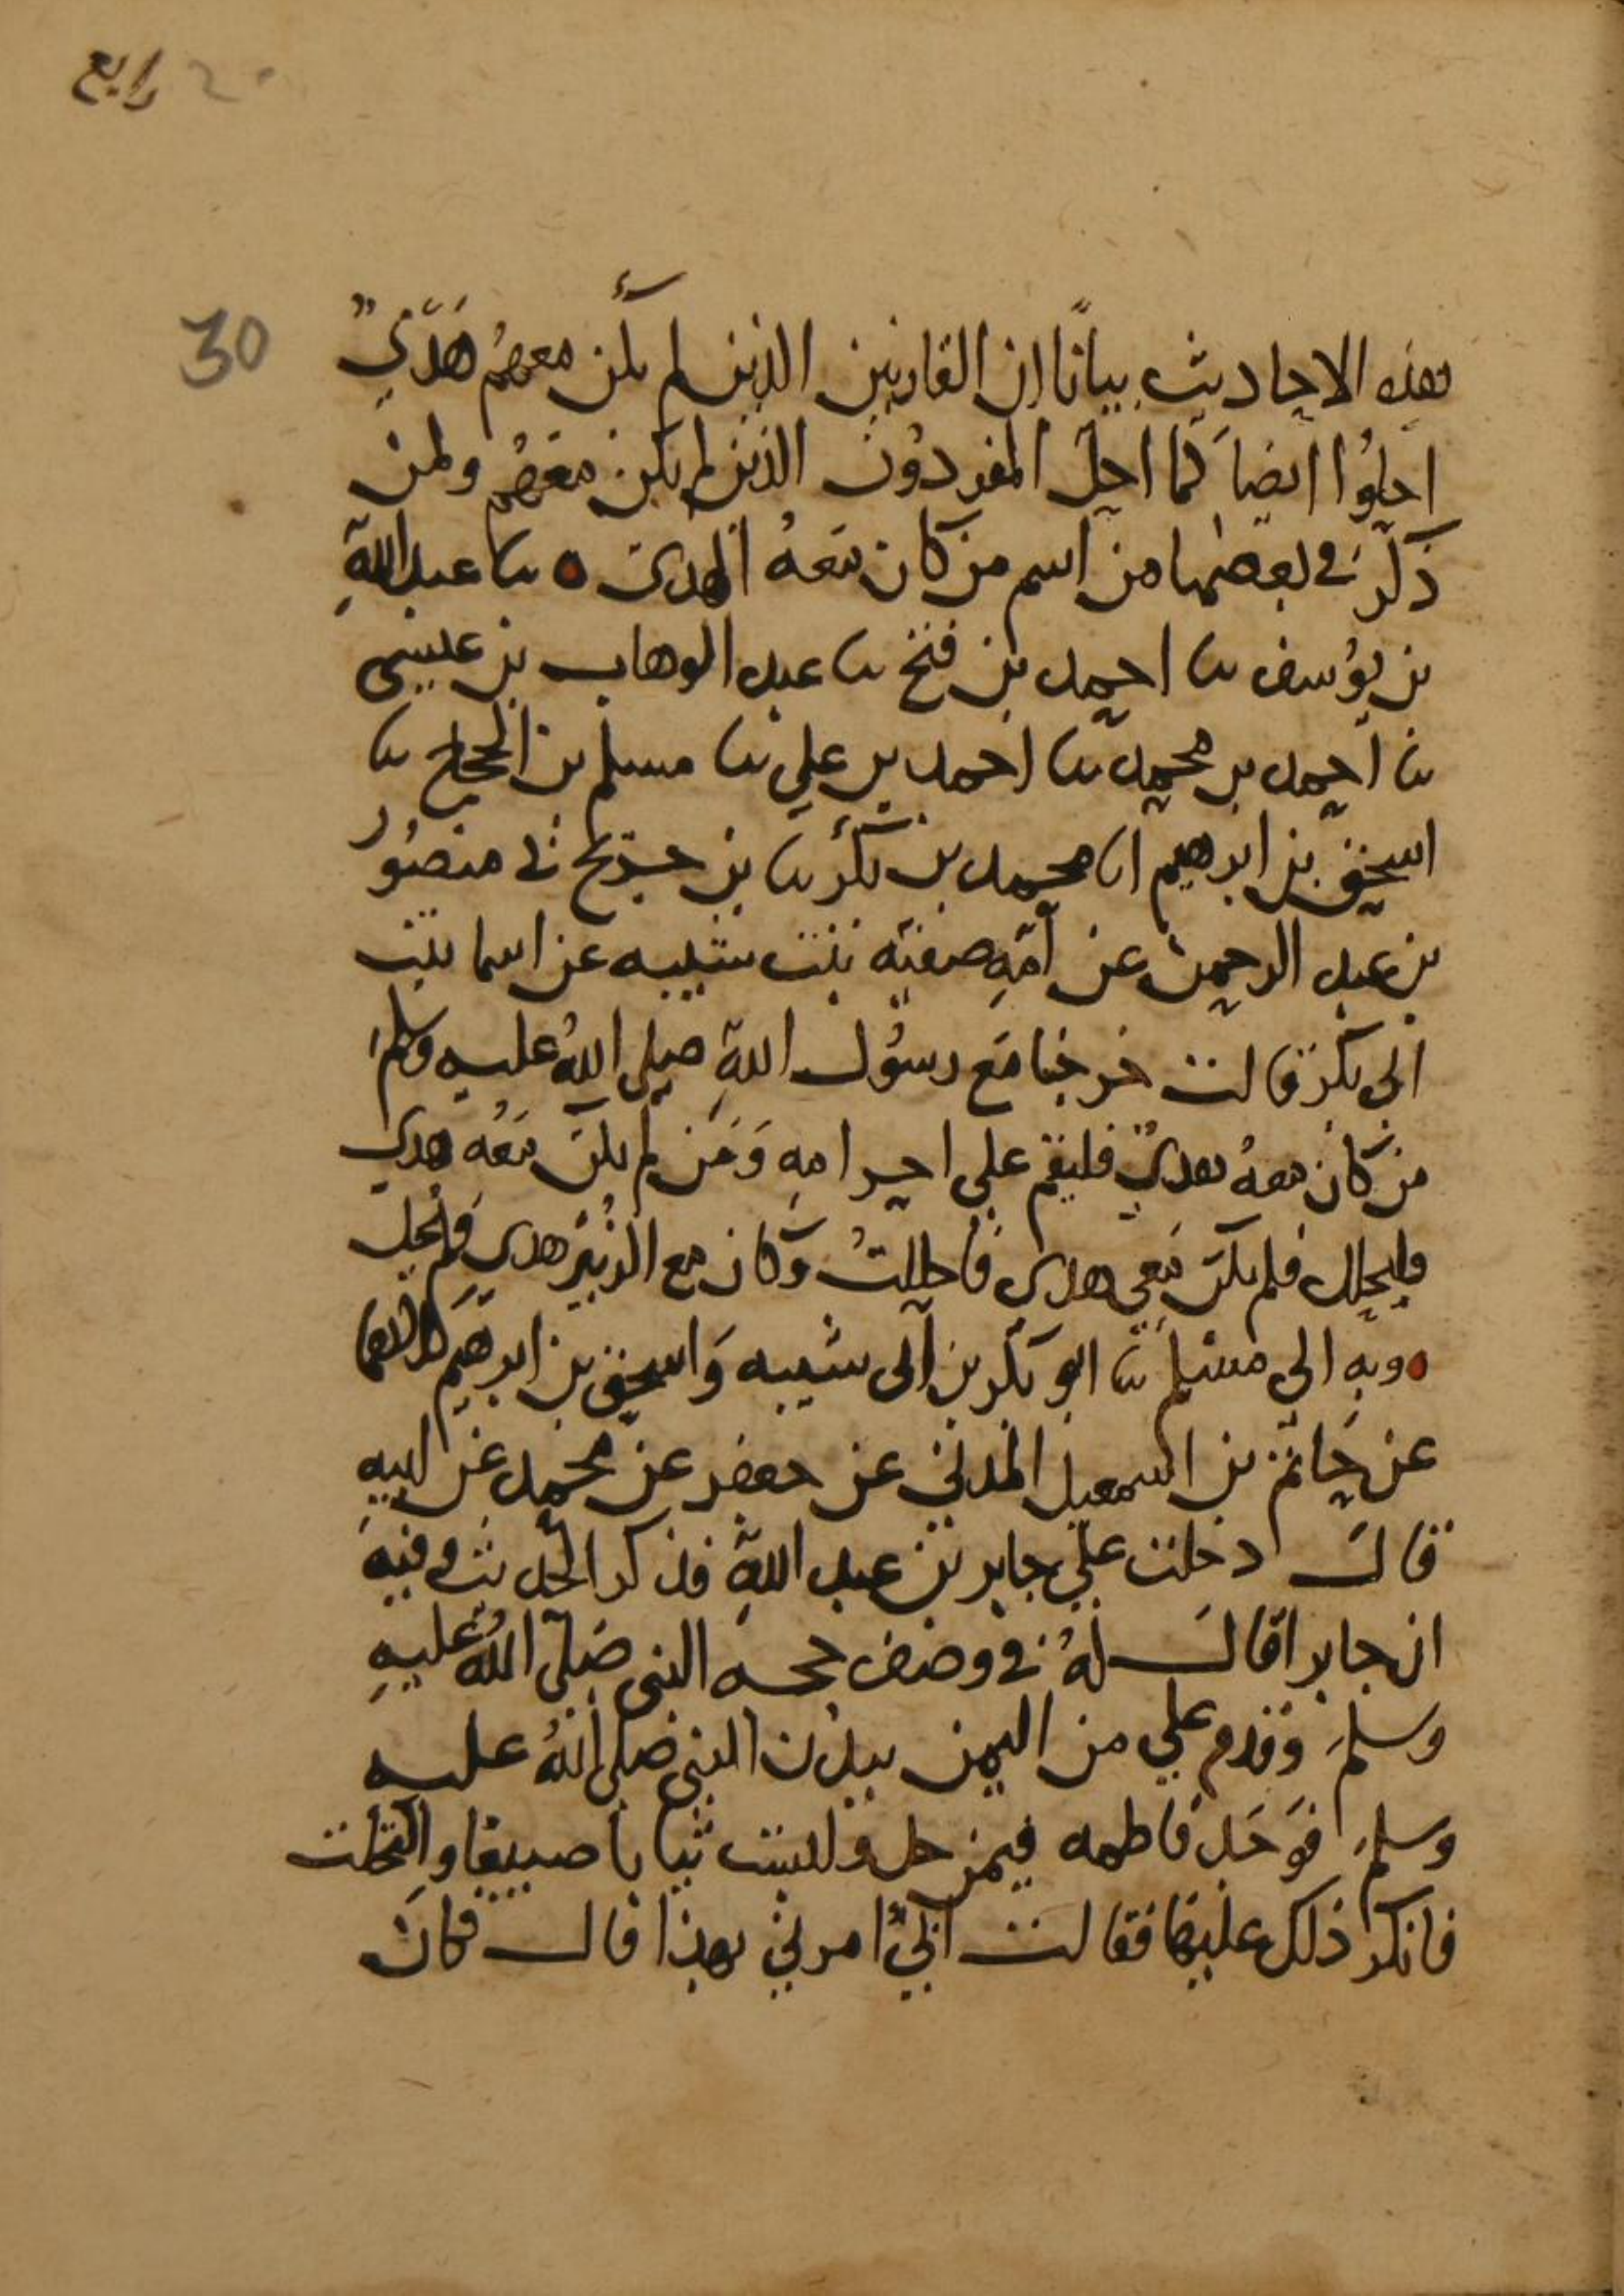 رابع ٢٠
30
بهذه الاحاديث بيانًا ان القارنين الذين لم يكن معهم هَدْيٌ
احلوُا ايضا كما احل المفردون الذين لم يكن معهم ولمن
ذكر في بعضها من اسم من كان معهُ الهدي ثنا عبد اللهِ
بن يوُسف ثنا احمد بن فتح ثنا عبد الوهاب بن عيسى
ثنا احمد بن محمد ثنا احمد بن علي ثنا مسلم بن الحجاج ثنا
اسحق بن ابرهيم انا محمد بن بكر ثنا بن جريج ني منصُور
بن عبد الرحمن عن اُمّهِ صفيّه بنت شيبه عن اسما بنت
ابى بكر قالت خرجنا مَع رسوُل اللهِ صلى اللهُ عليه وسلمَ
من كان معهُ هديٌ فليقم على احرامهِ وَمَن لم يكن مَعَهُ هدي
فليحلل فلم يكن مَعي هدي فاحللتُ وكان مع الزبير هدي فلم يحل
وبهِ الى مسلم ثنا ابو بكر بن ابى شيبه وَاسحق بن ابرهيم كلاهما
عن حاتم بن اسمعيل المدني عن جعفر عن محمد عن ابيهِ
قال دخلت على جابر بن عبد اللهِ فذكر الحديث وفيهِ
ان جابرا قال لهُ في وصف حجه النبى صَلى اللهُ عليهِ
وسلمَ وقدم علي من اليمن ببدن النبى صلى اللهُ عليه
وسلمَ فوَجَد فاطمه فيمن حل ولبست ثيابا صبيغا واكتحلت
فانكر ذلك عليها فقالت ابيُّ امرني بهذا قال فكانَ